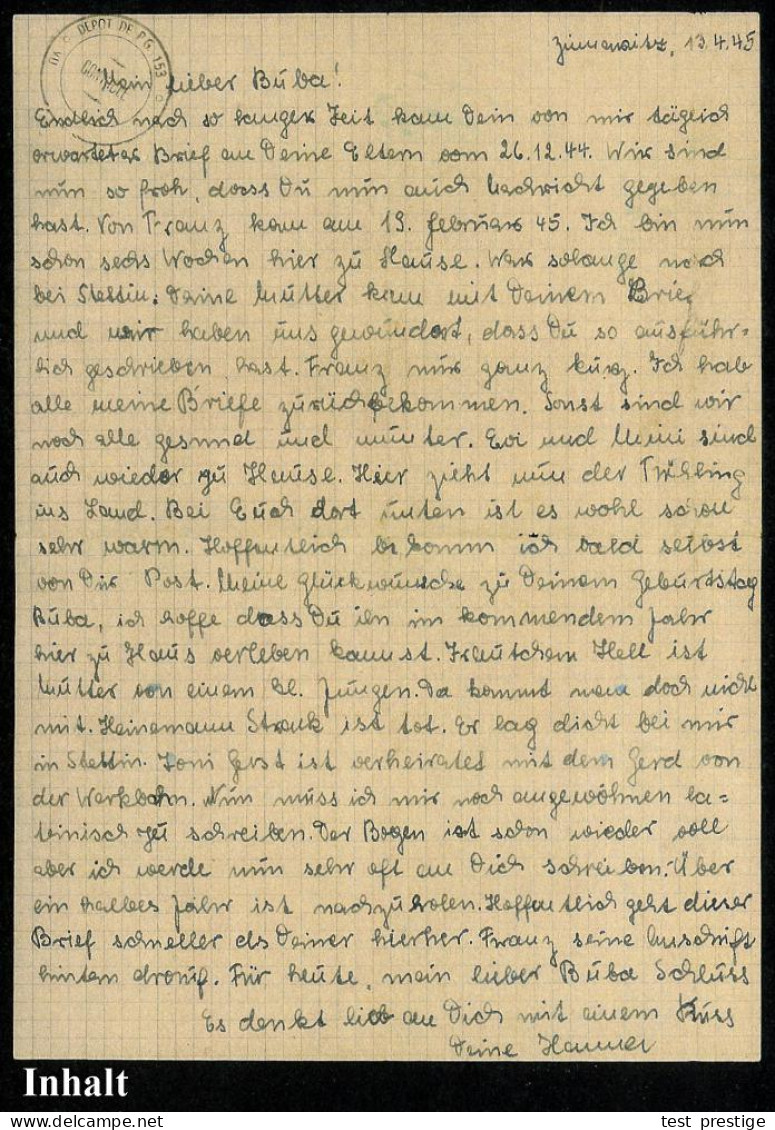 DEPOT DE P.G. 153
Zinnowitz, 13.4.45
Mein lieber Buba!
Endlich nach so langer Zeit kam Dein von mir täglich
erwarteter Brief an Deine Eltern vom 26.12.44. Wir sind
nun so froh, dass Du nun auch Nachricht gegeben
hast. Von Franz kam am 19. Februar 45. Ich bin nun
schon sechs Wochen hier zu Hause. War solange noch
bei Stettin. Deine Mutter kam mit Deinem Brief
und wir haben uns gewundert, dass Du so ausführ-
lich geschrieben hast. Franz nur ganz kurz. Ich hab
alle meine Briefe zurückbekommen. Sonst sind wir
noch alle gesund und munter. Evi und Meini sind
auch wieder zu Hause. Hier zieht nun der Frühling
ins Land. Bei Euch dort unten ist es wohl schon
sehr warm. Hoffentlich bekomm ich bald selbst
von Dir Post. Meine Glückwünsche zu Deinem Geburtstag
Buba, ich hoffe dass Du ihn im kommenden Jahr
hier zu Haus verleben kannst. Hell ist
Mutter von einem kl. Jungen. Da kommt man doch nicht
mit. Heinemann Strauk ist tot. Er lag dicht bei mir
in Stettin. Toni Gerst ist verheiratet mit dem Gerd von
der Werkbahn. Nun muss ich mir noch angewöhnen la=
teinisch zu schreiben. Der Bogen ist schon wieder voll
aber ich werde nun sehr oft an Dich schreiben. Über
ein halbes Jahr ist nachzuholen. Hoffentlich geht dieser
Brief schneller als Deiner hierher. Franz seine Anschrift
hinten drauf. Für heute, mein lieber Buba Schluss
Es denkt lieb an Dich mit einem Kuss
Deine Hannel
Inhalt
test prestige